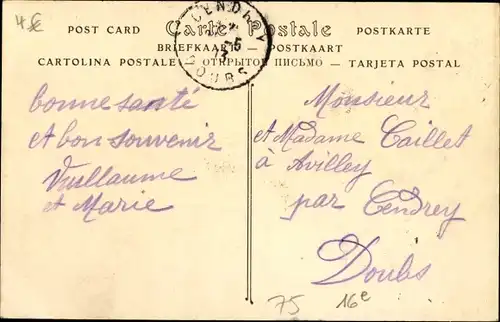 4€
POST CARD — Carte Postale — POSTKARTE
BRIEFKAART — POSTKAART
CARTOLINA POSTALE — ОТКРЫТОЕ ПИСЬМО — TARJETA POSTAL
CENDREY
DOUBS
bonne santé
et bon souvenir
Vuillaume
et Marie
Monsieur
et Madame Caillet
à Avilley
par Cendrey
Doubs
75 16e